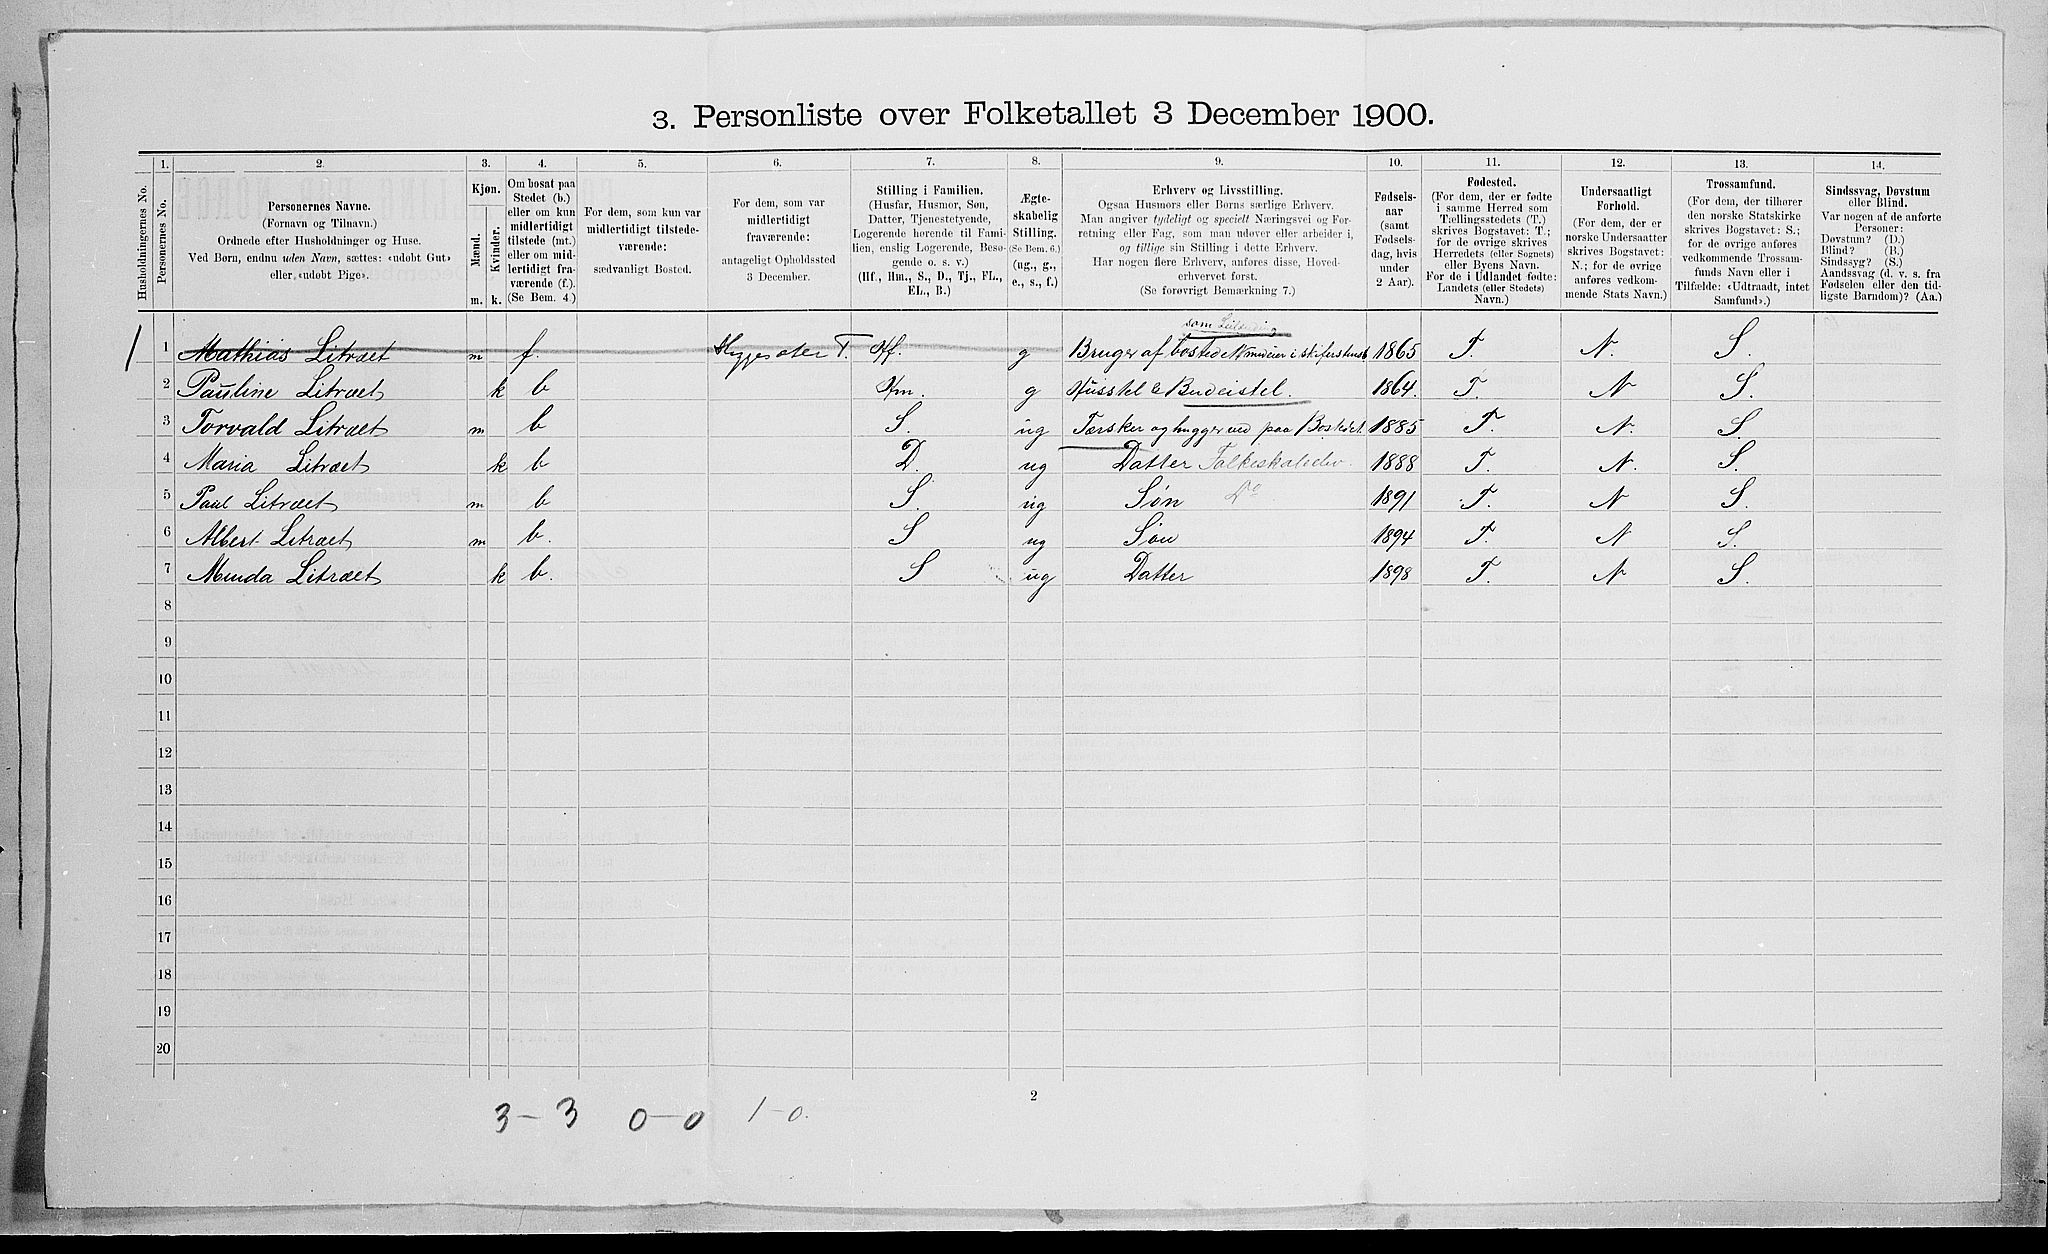 3. Personliste over Folketallet 3 December 1900.
Husholdningernes No.
1.
Personernes No.
2.
Personernes Navne.
(Fornavn og Tilnavn.)
Ordnede efter Husholdninger og Huse.
Ved Børn, endnu uden Navn, sættes: «udøbt Gut»
eller «udøbt Pige».
3.
Kjøn.
Mænd.
Kvinder.
m.
k.
4.
Om bosat paa
Stedet (b.)
eller om kun
midlertidigt
tilstede (mt.)
eller om mid-
lertidigt fra-
værende (f.).
(Se Bem. 4.)
5.
For dem, som kun var
midlertidigt tilstede-
værende:
sædvanligt Bosted.
6.
For dem, som var
midlertidigt
fraværende:
antageligt Opholdssted
3 December.
7.
Stilling i Familien.
(Husfar, Husmor, Søn,
Datter, Tjenestetyende,
Logerende hørende til Fami-
lien, enslig Logerende, Besø-
gende o. s. v.)
(Hf., Hm., S., D., Tj., FL.,
EL., B.)
8.
Ægte-
skabelig
Stilling.
(Se Bem. 6.)
(ug., g.,
e., s., f.)
9.
Erhverv og Livsstilling.
Ogsaa Husmors eller Børns særlige Erhverv.
Man angiver tydeligt og specielt Næringsvei og For-
retning eller Fag, som man udøver eller arbeider i,
og tillige sin Stilling i dette Erhverv.
Har nogen flere Erhverv, anføres disse, Hoved-
erhvervet først.
(Se forøvrigt Bemærkning 7.)
10.
Fødsels-
aar
(samt
Fødsels-
dag, hvis
under
2 Aar).
11.
Fødested.
(For dem, der er fødte
i samme Herred som
Tællingsstedets (T.)
skrives Bogstavet: T.;
for de øvrige skrives
Herredets (eller Sognets)
eller Byens Navn.
For de i Udlandet fødte:
Landets (eller Stedets)
Navn.)
12.
Undersaatligt
Forhold.
(For dem, der er
norske Undersaatter
skrives Bogstavet:
N.; for de øvrige
anføres vedkom-
mende Stats Navn.)
13.
Trossamfund.
(For dem, der tilhører
den norske Statskirke
skrives Bogstavet: S.;
for de øvrige anføres
vedkommende Trossam-
funds Navn eller i
Tilfælde: «Udtraadt, intet
Samfund».)
14.
Sindssvag, Døvstum
eller Blind.
Var nogen af de anførte
Personer:
Døvstum? (D.)
Blind? (B.)
Sindssyg? (S.)
Aandssvag (d. v. s. fra
Fødselen eller den tid-
ligste Barndom)? (Aa.)
som
1 1 Mathias Litræt m f. T. Hf. g Bruger af bostedet 1865 T. N. S.
2 Pauline Litræt k b Hm. g Husstel & Budeistel. 1864. T. N S.
3 Torvald Litræt m b S. ug Tærsker og hugger ved paa Bostedet. 1885 T. N. S.
4 Maria Litræt k b D. ug Datter Folkeskoleelev. 1888 T. N. S.
5 Paul Litræt m b S. ug Søn Do 1891 T. N S.
6 Albert Litræt m b. S ug Søn 1894 T. N S.
7 Menda Litræt k b. S ug Datter 1898 T. N S.
8
9
10
11
12
13
14
15
16
17
18
19
20
2
3-3 0-0 1-0.